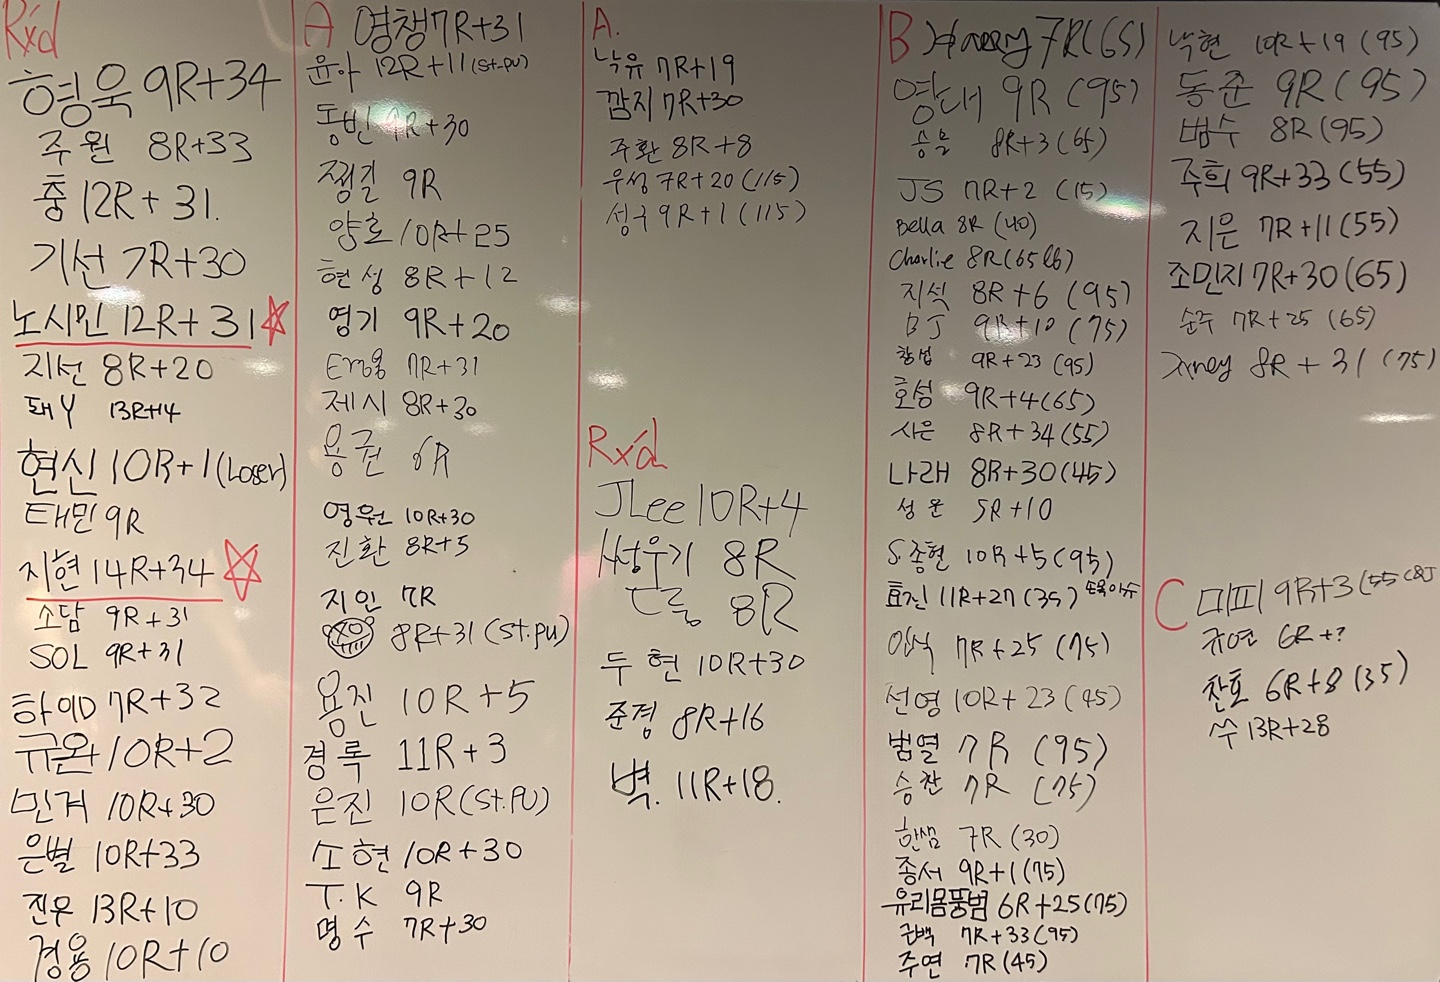 Rx'd
형욱 9R+34
주원 8R+33
충 12R+31.
기선 7R+30
노시민 12R+31
지선 8R+20
돼Y 13R+14
현신 10R+1 (Loser)
태민 9R
지현 14R+34
소담 9R+31
SOL 9R+31
하영 7R+32
규완 10R+2
민거 10R+30
은별 10R+33
진우 13R+10
경용 10R+10
A 영챙 7R+31
윤아 12R+11 (St.pu)
동빈 9R+30
쩡길 9R
양호 10R+25
현성 8R+12
영기 9R+20
7R+31
제시 8R+30
용권 6R
영원 10R+30
진환 8R+5
지인 7R
8R+31 (St.pu)
용진 10R+5
경록 11R+3
은진 10R (St.PU)
소현 10R+30
T.K 9R
명수 7R+30
A.
낙유 7R+19
깜지 7R+30
주환 8R+8
우성 7R+20 (115)
성구 9R+1 (115)
Rx'd
JLee 10R+4
8R
8R
두현 10R+30
준경 8R+16
벽. 11R+18.
B Harry 7R (65)
영태 9R (95)
승율 8R+3 (65)
JS 7R+2 (75)
Bella 8R (40)
Charlie 8R (65lb)
지석 8R+6 (95)
BJ 9R+10 (75)
창섭 9R+23 (95)
호성 9R+4 (65)
시은 8R+34 (55)
나래 8R+30 (45)
성운 5R+10
S.종현 10R+5 (95)
효진 11R+27 (35)
인식 7R+25 (75)
선영 10R+23 (45)
범열 7R (95)
승찬 7R (75)
한샘 7R (30)
종서 9R+1 (75)
유리몸풍범 6R+25 (75)
근백 7R+33 (95)
주연 7R (45)
낙현 10R+19 (95)
동준 9R (95)
범수 8R (95)
주희 9R+33 (55)
지은 7R+11 (55)
조민지 7R+30 (65)
순주 7R+25 (65)
8R+31 (75)
C 미피 9R+3 (55
규연 6R+?
찬호 6R+8 (35)
쑤 13R+28